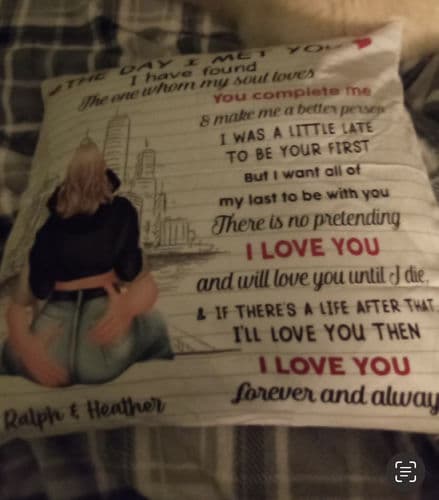 THE DAY I MET YOU
I have found
The one whom my soul loves
You complete me
& make me a better person
I WAS A LITTLE LATE
TO BE YOUR FIRST
But I want all of
my last to be with you
There is no pretending
I LOVE YOU
and will love you until I die,
& IF THERE'S A LIFE AFTER THAT,
I'LL LOVE YOU THEN
I LOVE YOU
forever and alway
Ralph & Heather